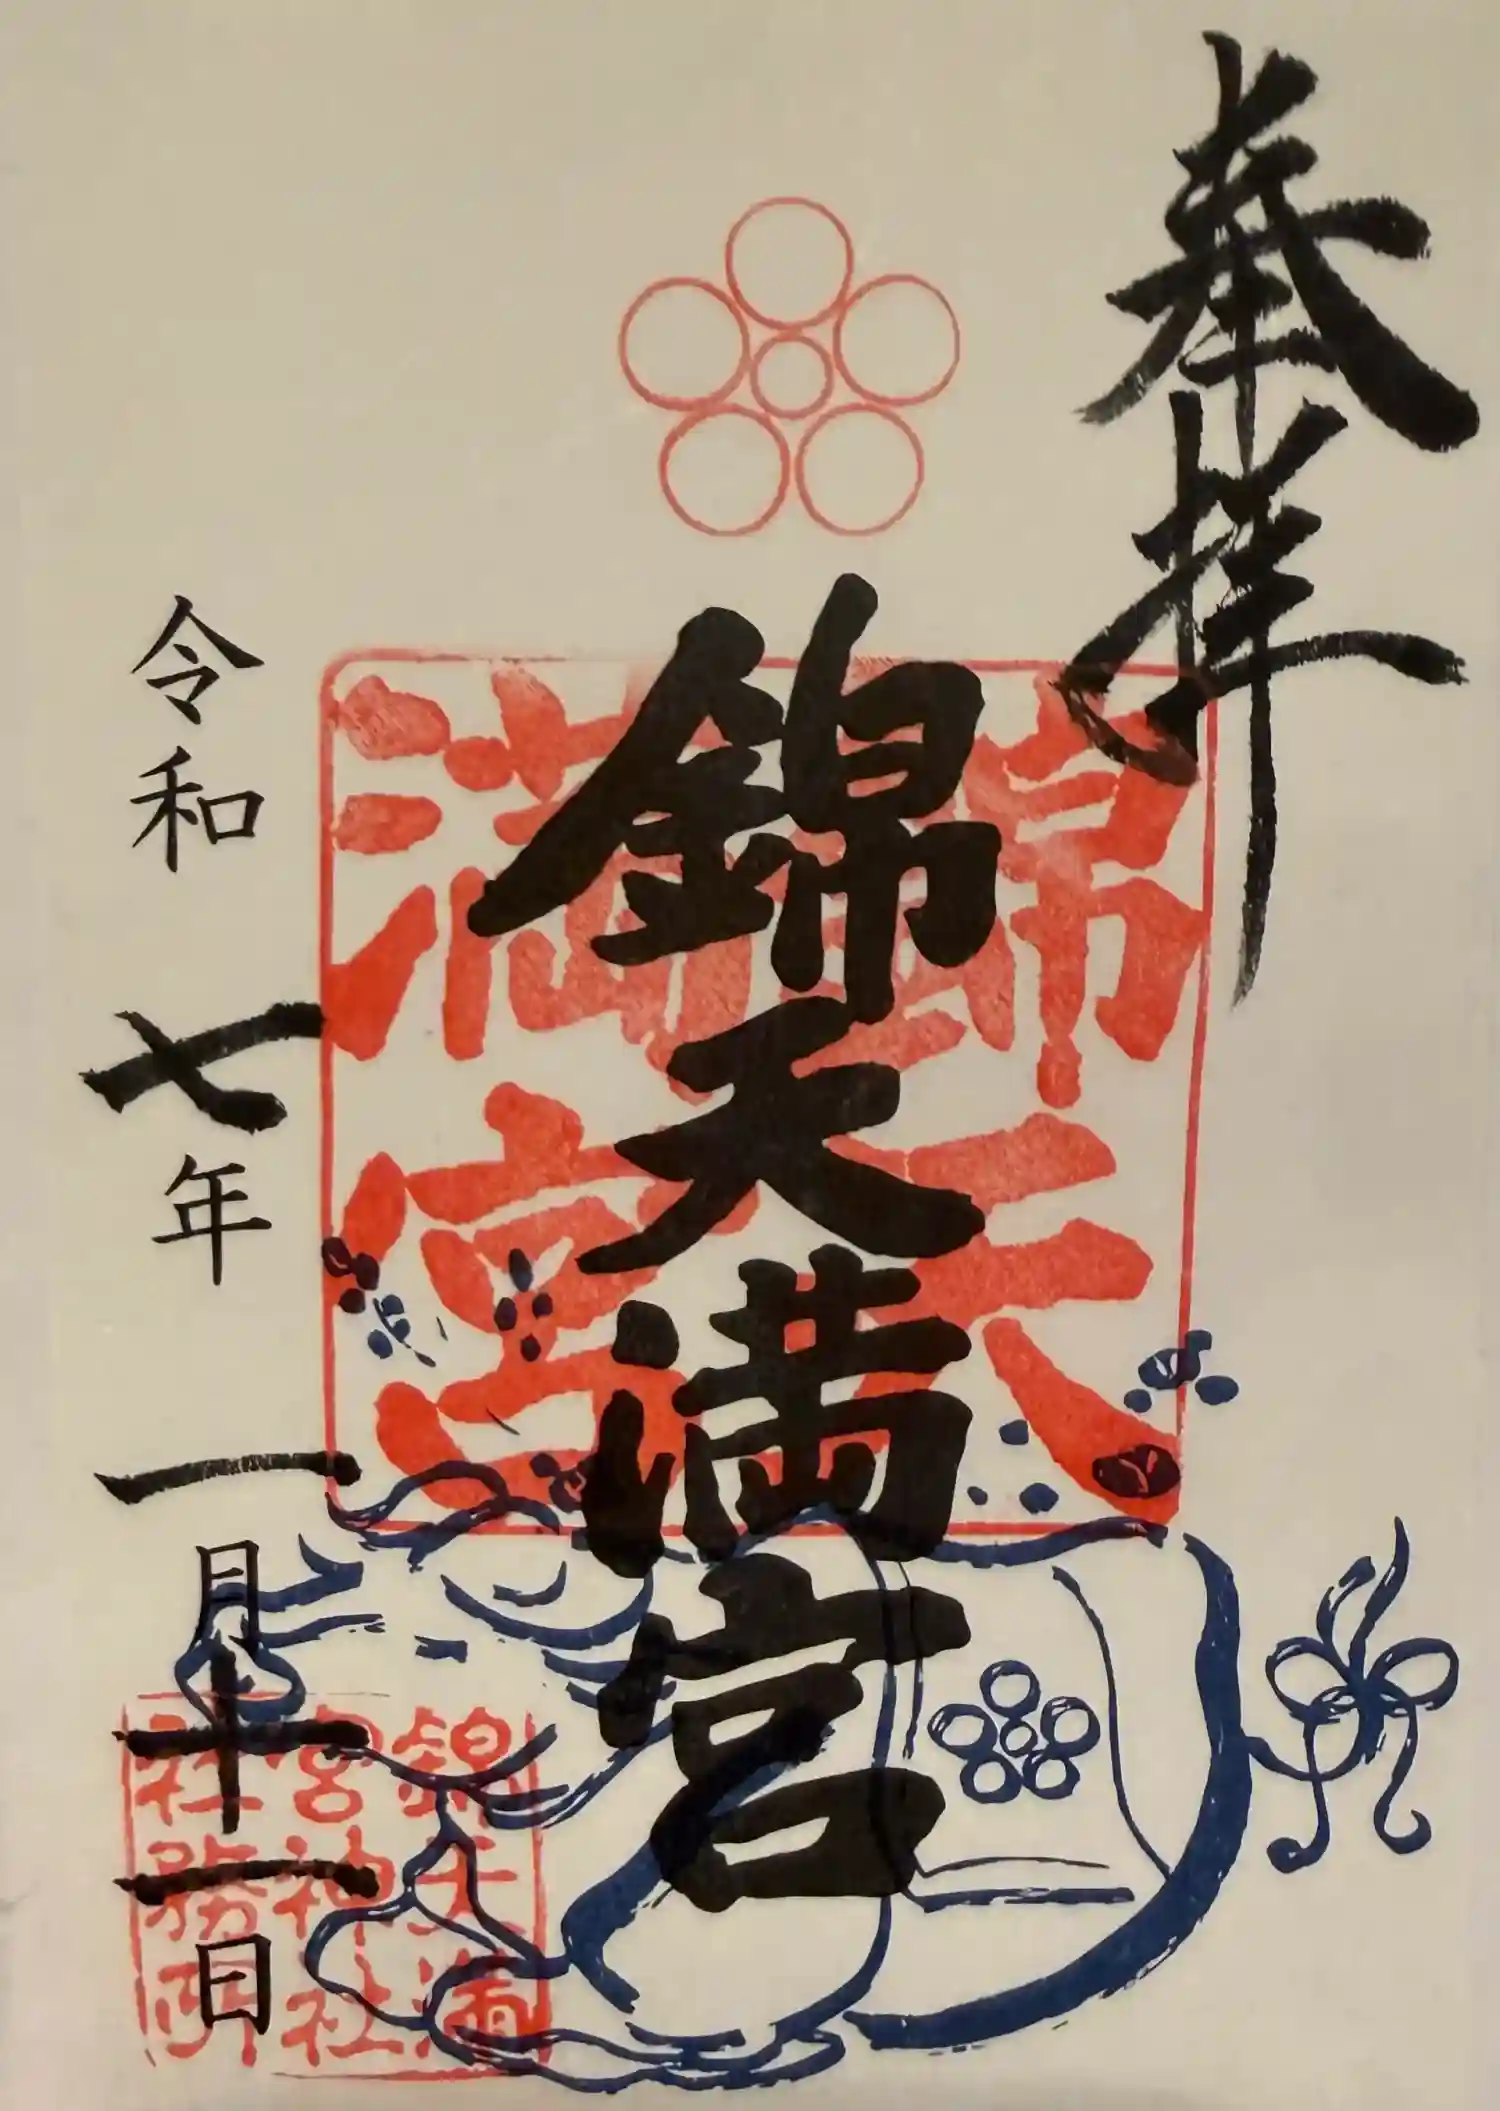 奉拝
錦天満宮
錦天
満宮
令和七年一月十一日
錦天満
宮神社
社務所